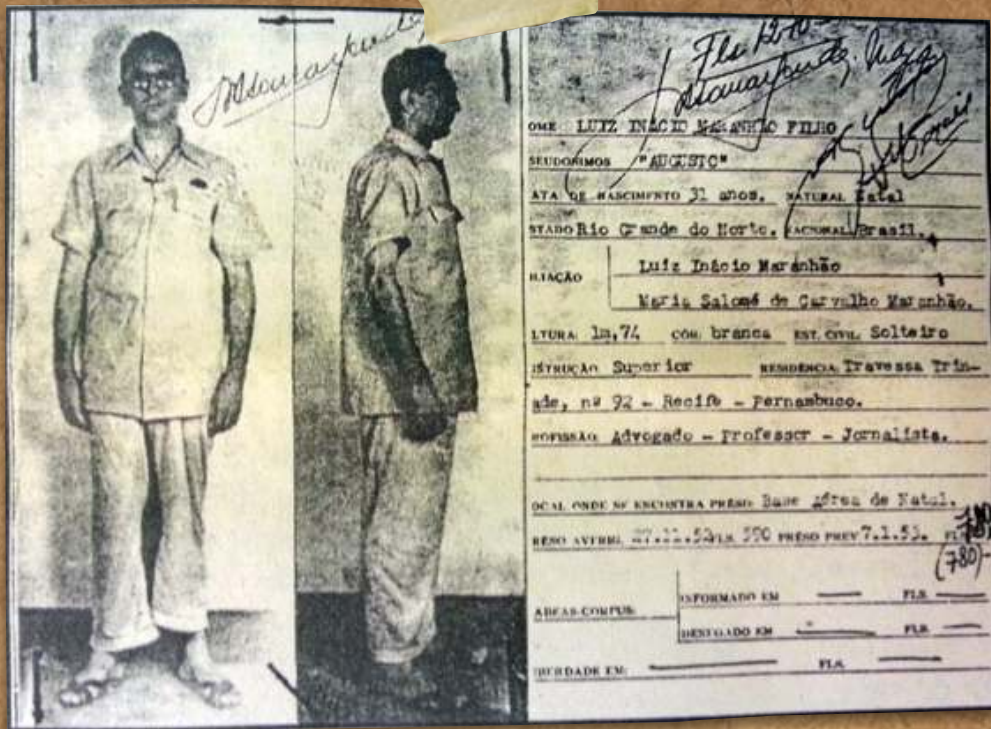 Fls 1240
OME LUIZ INÁCIO MARANHÃO FILHO
SEUDONIMOS "AUGUSTO"
ATA DE NASCIMENTO 31 anos. NATURAL Natal
STADO Rio Grande do Norte. NACIONAL Brasil.
ILIAÇÃO Luiz Inácio Maranhão
Maria Salomé de Carvalho Maranhão.
LTURA 1m,74 COR branca EST. CIVIL Solteiro
STRUÇÃO Superior RESIDENCIA Travessa Trin-
ade, nº 92 - Recife - Pernambuco.
ROFISSÃO Advogado - Professor - Jornalista.
OCAL ONDE SE ENCONTRA PRESO Base aérea de Natal.
RESO AVERIG. 27.11.52 FLS. 590 PRESO PREV 7.1.53. FLS 780
(780)
ABEAS-CORPUS INFORMADO EM FLS.
DENEGADO EM FLS.
IBERDADE EM: FLS.